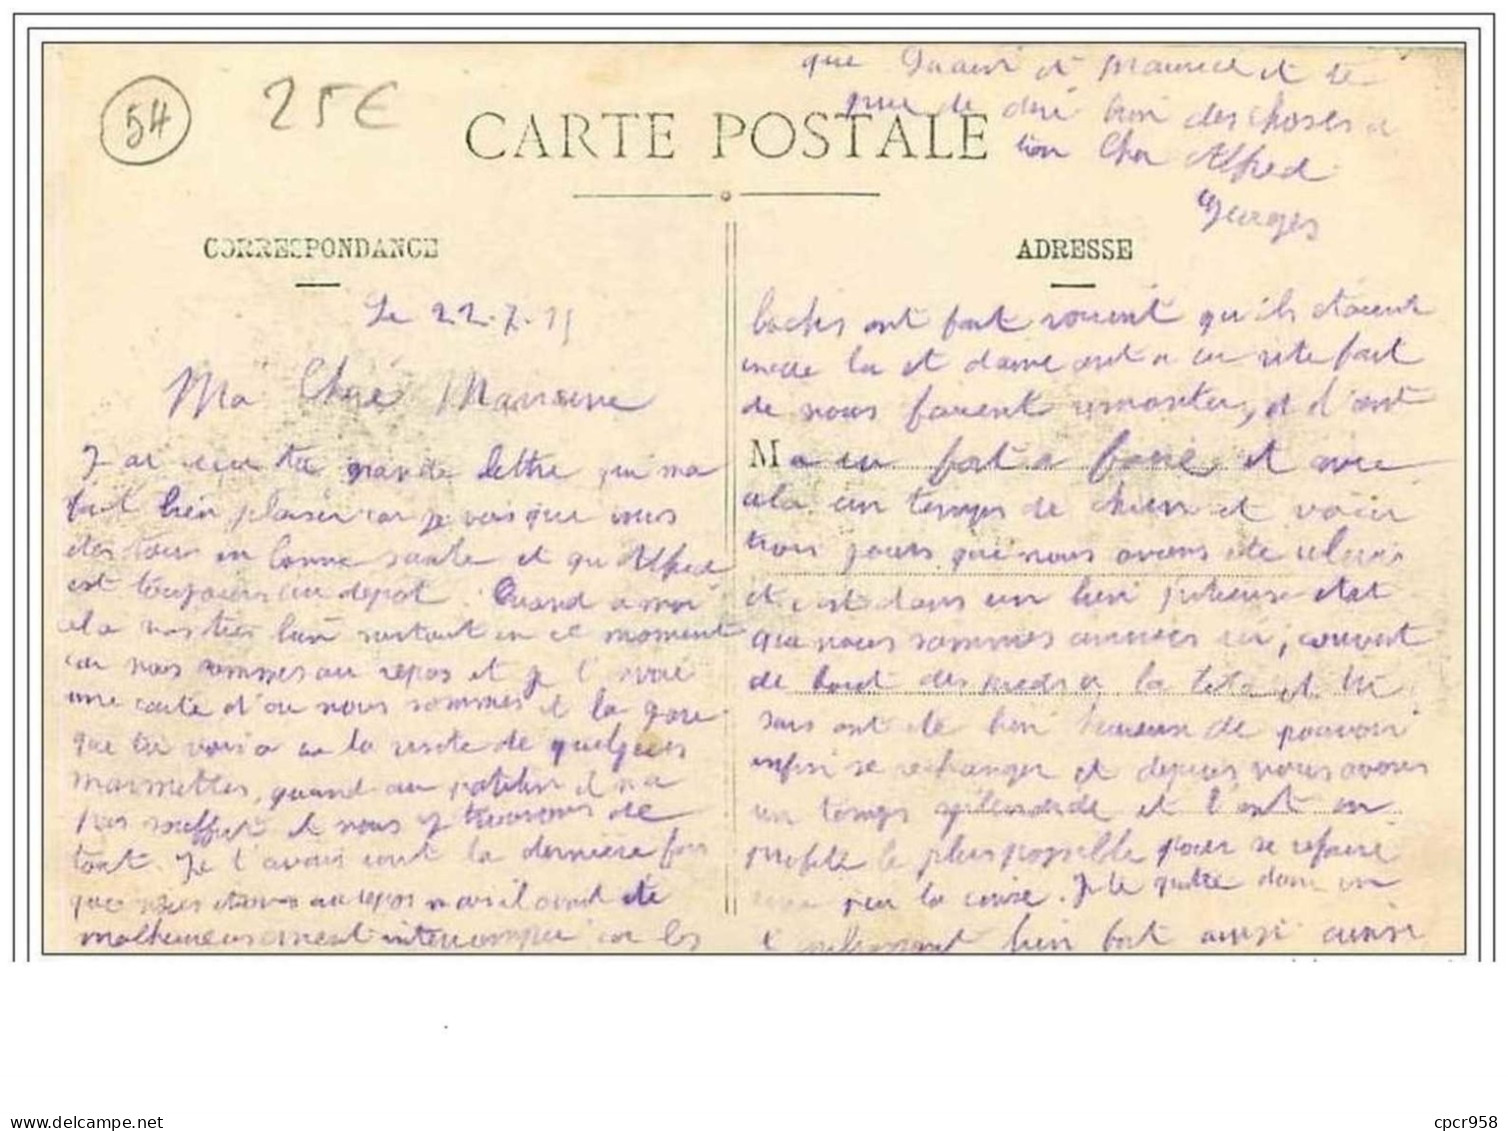 54
25€
que et Maurice et te
prie de dire bien des choses a
ton Cher Alfred
Georges
CARTE POSTALE
CORRESPONDANCE
ADRESSE
Le 22.7.15
Ma Cheré
J ai reçu ta grande lettre qui ma
fait bien plaisir car je vois que vous
etes tous en bonne sante et que Alfred
est toujours au depot. Quand a moi
cela vas tres bien surtout en ce moment
car nous sommes au repos et je t envoie
une carte d'ou nous sommes et la gare
que tu vois a eu la visite de quelques
marmettes, quand au patelin il n a
pas souffert et nous y trouvons de
tout. Je t'avais ecrit la derniere fois
que nous etions au repos mais il avait ete
malheureusement interrompu car les
boches ont fait qu'ils etaient
la et dame ont a eu vite fait
de nous faire remonter, et l'ont
M a eu fort a faire et avec
cela un temps de chien et voici
trois jours que nous avons ete releve
et c'est dans un bien piteuse etat
que nous sommes arrivés ici, couvert
de boue des pieds a la tete et tu
sais ont ete bien heureuse de pouvoir
enfin se rechanger et depuis nous avons
un temps splendide et l'ont en
profite le plus possible pour se refaire
un peu la cerise. Je te quitte dans un
t embrassant bien fort ainsi
cpcr958